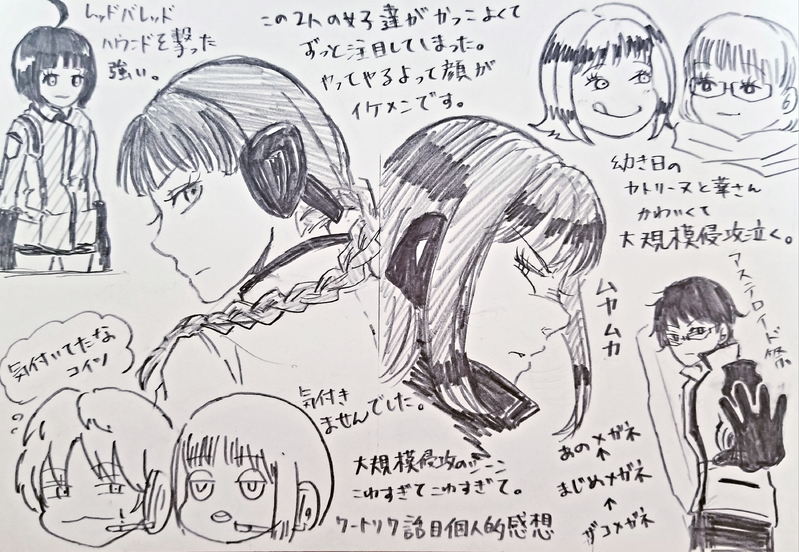 レッドバレッド
ハウンドを撃った
強い。
この2人の女子達がかっこよくて
ずっと注目してしまった。
やってやるよって顔が
イケメンです。
幼き日の
カトリーヌと華さん
かわいくて
大規模侵攻泣く。
ムカムカ
アステロイド祭
気付いてたな
コイツ
気付き
ませんでした。
大規模侵攻のシーン
こわすぎてこわすぎて。
あのメガネ
↑
まじめメガネ
↑
ザコメガネ
ワートリク話目個人的感想